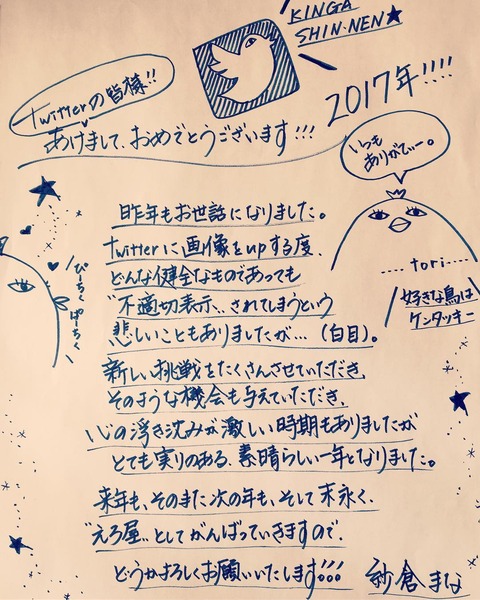 KINGA
SHIN-NEN★
Twitterの皆様!!
2017年!!!!
あけまして、おめでとうございます!!!
いつも
ありがてぃー。
昨年もお世話になりました。
Twitterに画像をupする度、
....tori....
どんな健全なものであっても
好きな鳥は
ケンタッキー
ぴーちく
ぱーちく
"不適切表示"されてしまうという
悲しいこともありましたが…(白目)。
新しい挑戦をたくさんさせていただき、
そのような機会も与えていただき、
心の浮き沈みが激しい時期もありましたが
とても実りのある、素晴らしい一年となりました。
来年も、そのまた次の年も、そして末永く、
"えろ屋"としてがんばっていきますので、
どうかよろしくお願いいたします!!!
紗倉まな